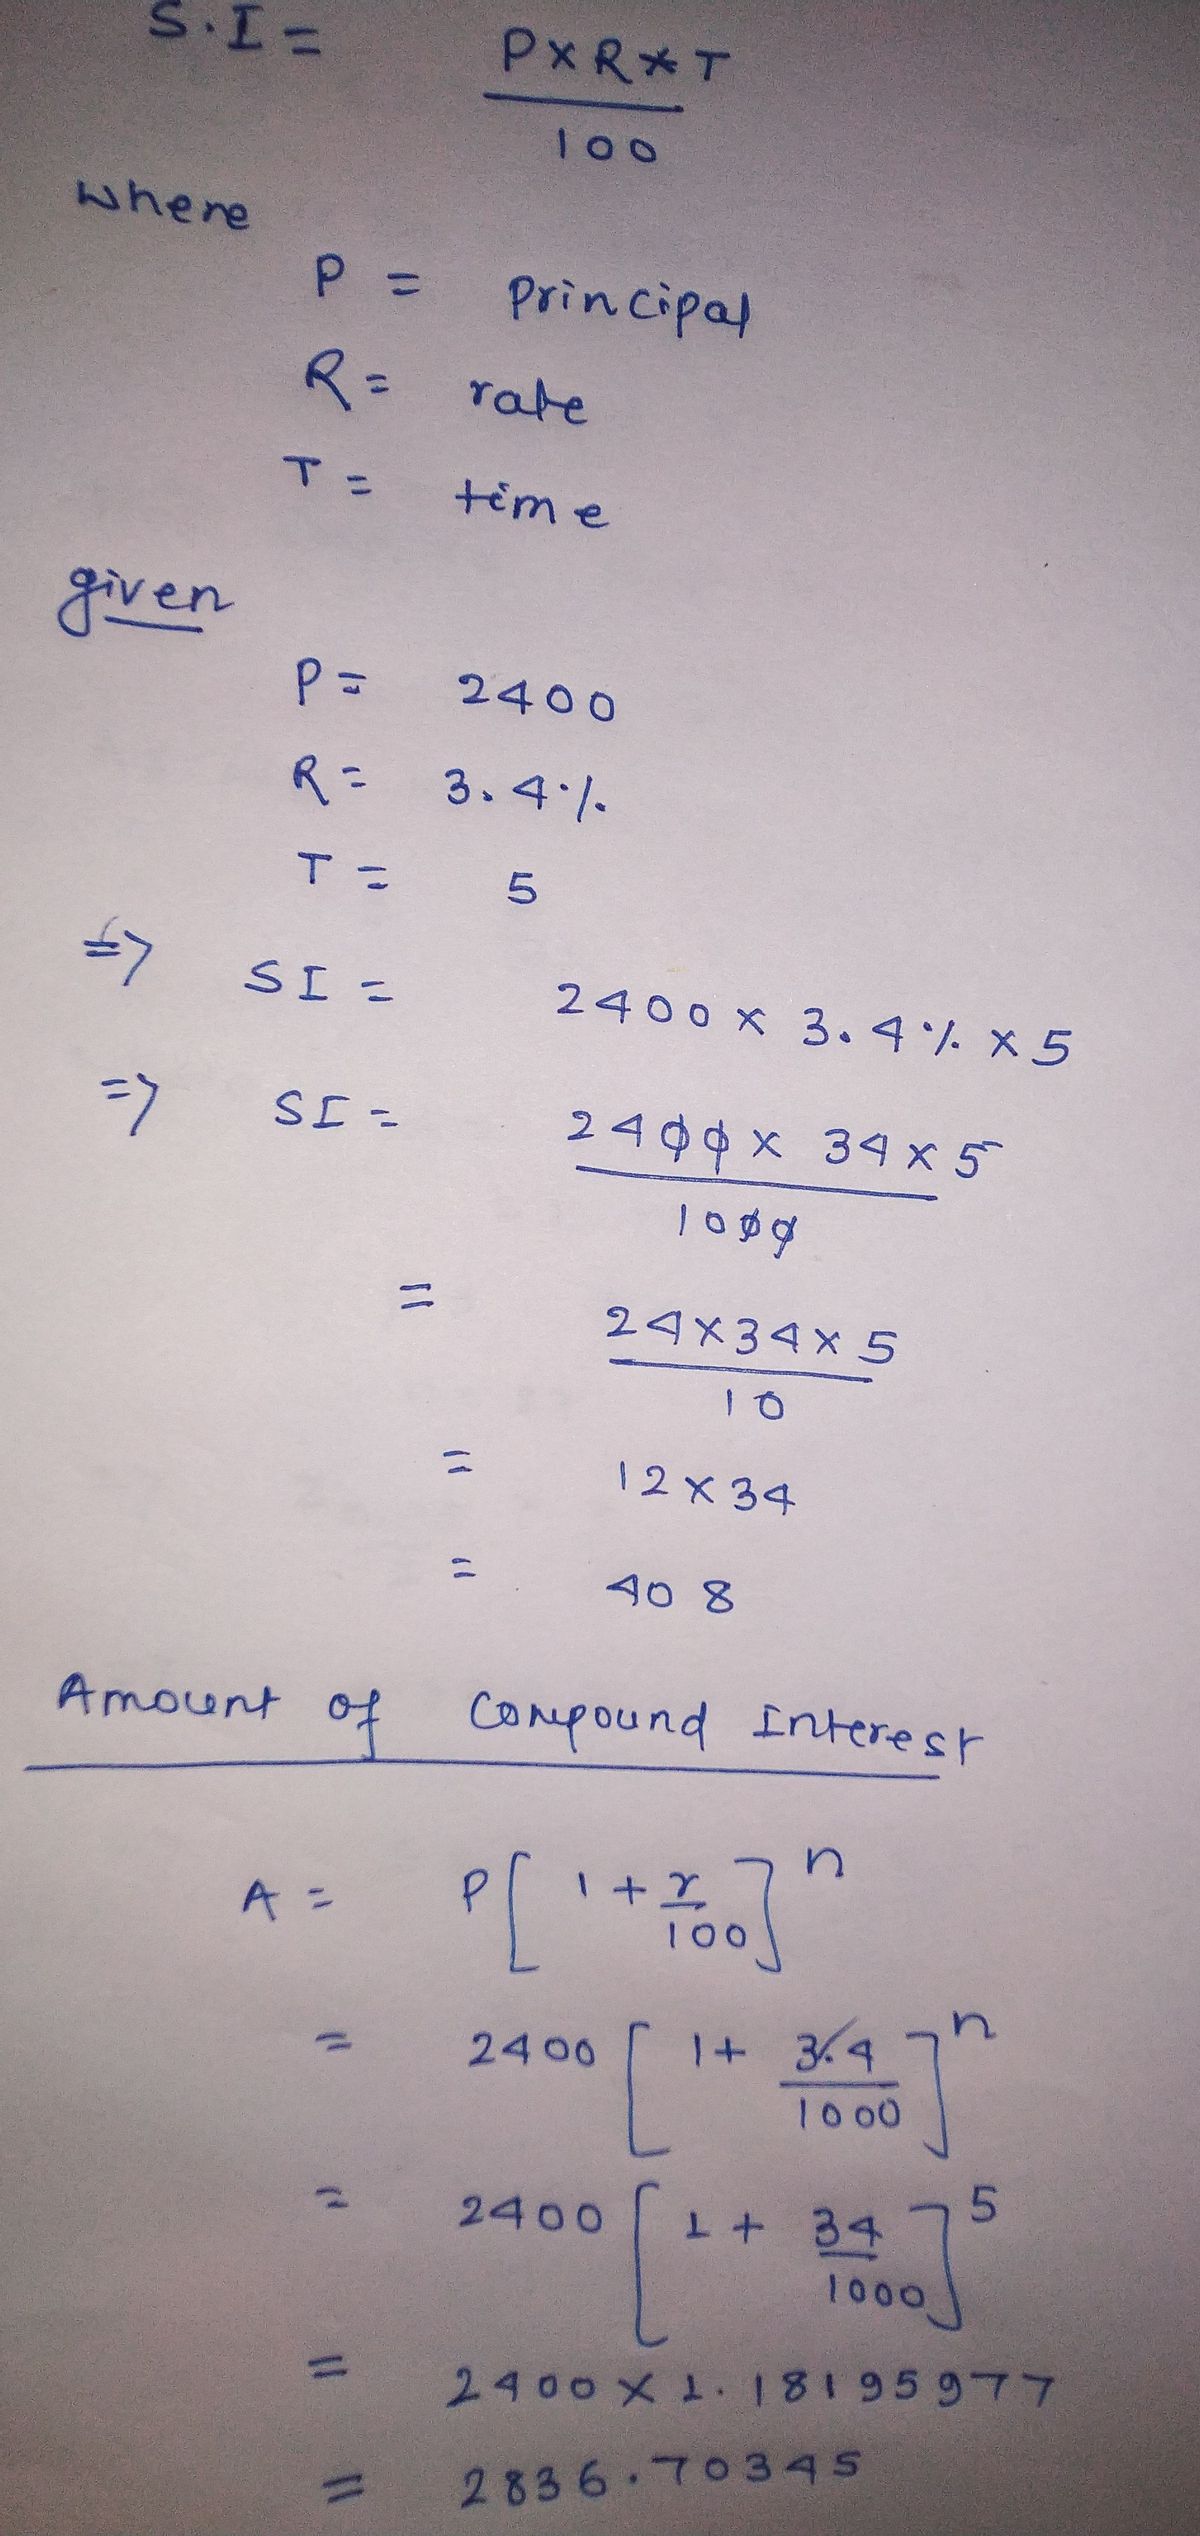 S.I = P×R×T
100
where
P = principal
R = rate
T = time
given
P = 2400
R = 3.4%
T = 5
=> SI = 2400 × 3.4% × 5
=> SI = 2400 × 34 × 5
1000
= 24×34×5
10
= 12×34
= 408
Amount of Compound Interest
A = P[1+r/100]^n
= 2400[1+ 3.4/1000]^n
= 2400[1+ 34/1000]^5
= 2400×1.18195977
= 2836.70345